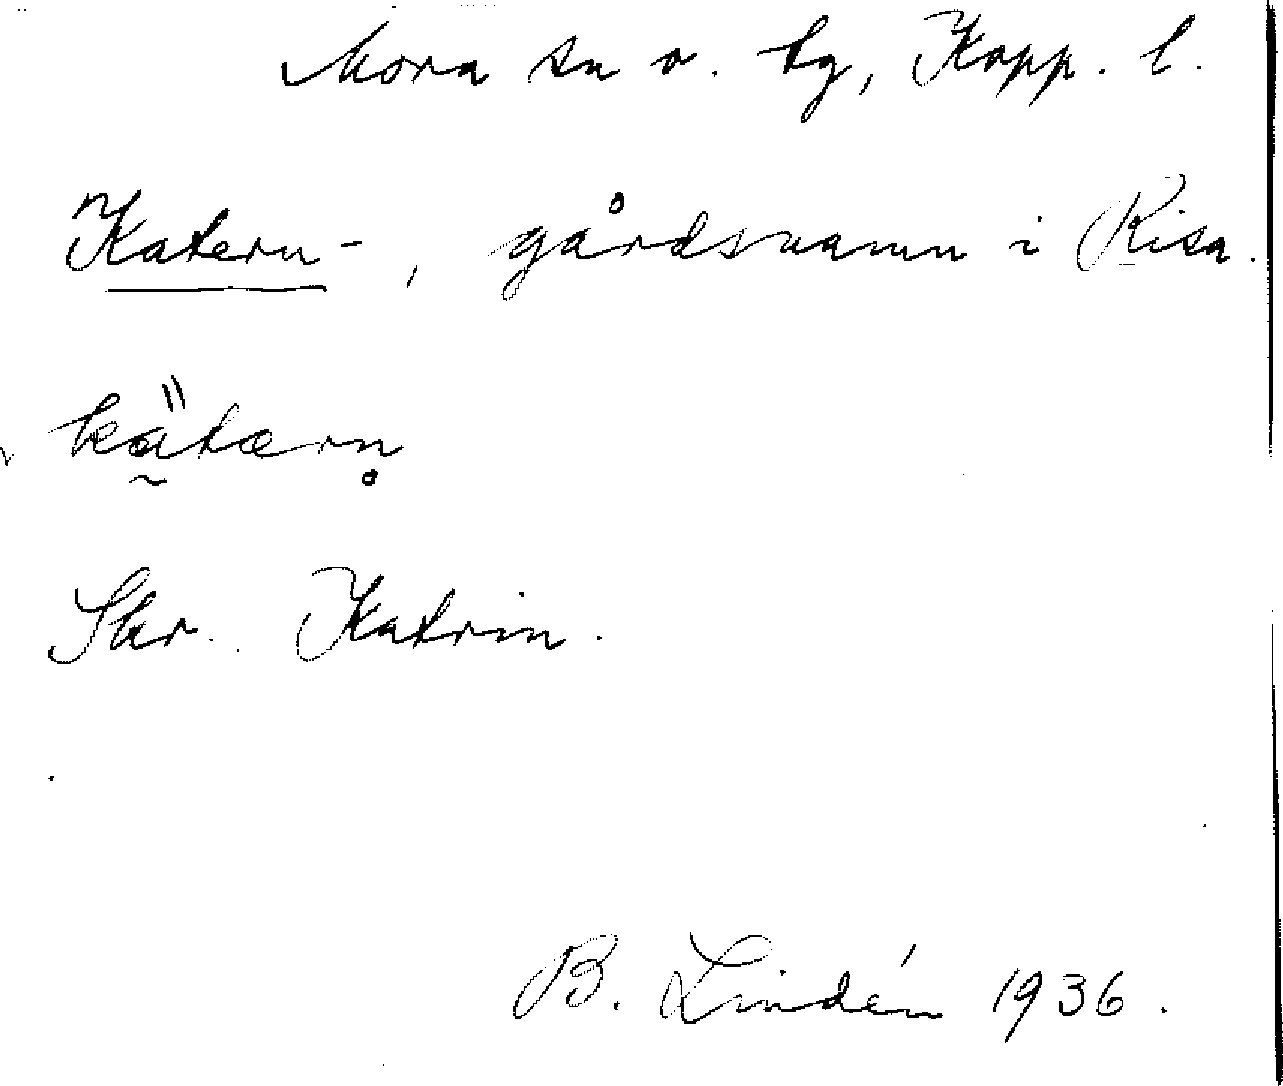 Mora sn o. tg, Kopp. l.
Katern-, gårdsnamn i Risa.
Skr. Katrin.
B. Lindén 1936.